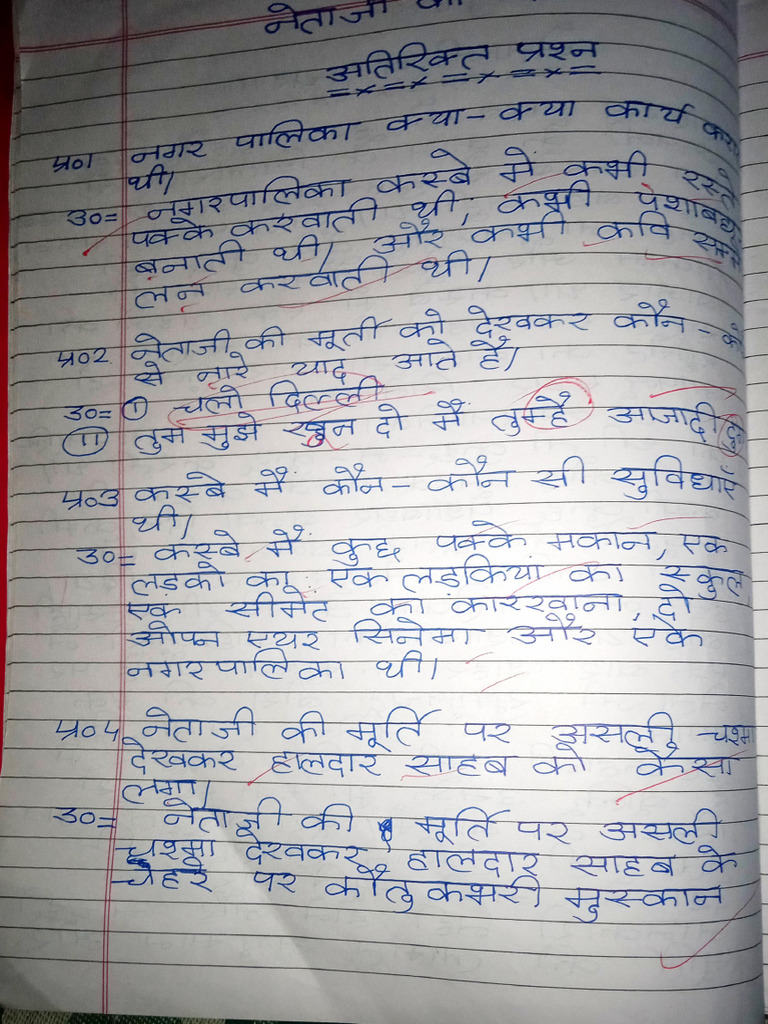 नेताजी का
अतिरिक्त प्रश्न
प्र०1 नगर पालिका क्या-क्या कार्य
थी।
उ०= नगरपालिका कस्बे में कभी रस्ते
पक्के करवाती थी, कभी
बनाती थी। और कभी कवि सम्मे
लन करवाती थी।
प्र०2 नेताजी की मूर्ती को देखकर कौन-कौ
से नारे याद आते हैं।
उ०= ① चलो दिल्ली
(11) तुम मुझे खून दो मैं तुम्हैं आजादी
प्र०3 कस्बे मैं कौन-कौन सी सुविधाएँ
थी।
उ०= कस्बे मैं कुछ पक्के मकान, एक
लड़को का, एक लड़कियां का स्कुल
एक सीमेंट का कारखाना, दो
ओपन एयर सिनेमा और एक
नगरपालिका थी।
प्र०4 नेताजी की मूर्ति पर असली चश्मा
देखकर हालदार साहब को कैसा
लगा।
उ०= नेताजी की मूर्ति पर असली
चश्मा देखकर हालदार साहब के
चेहरे पर कौतुकभरी मुस्कान